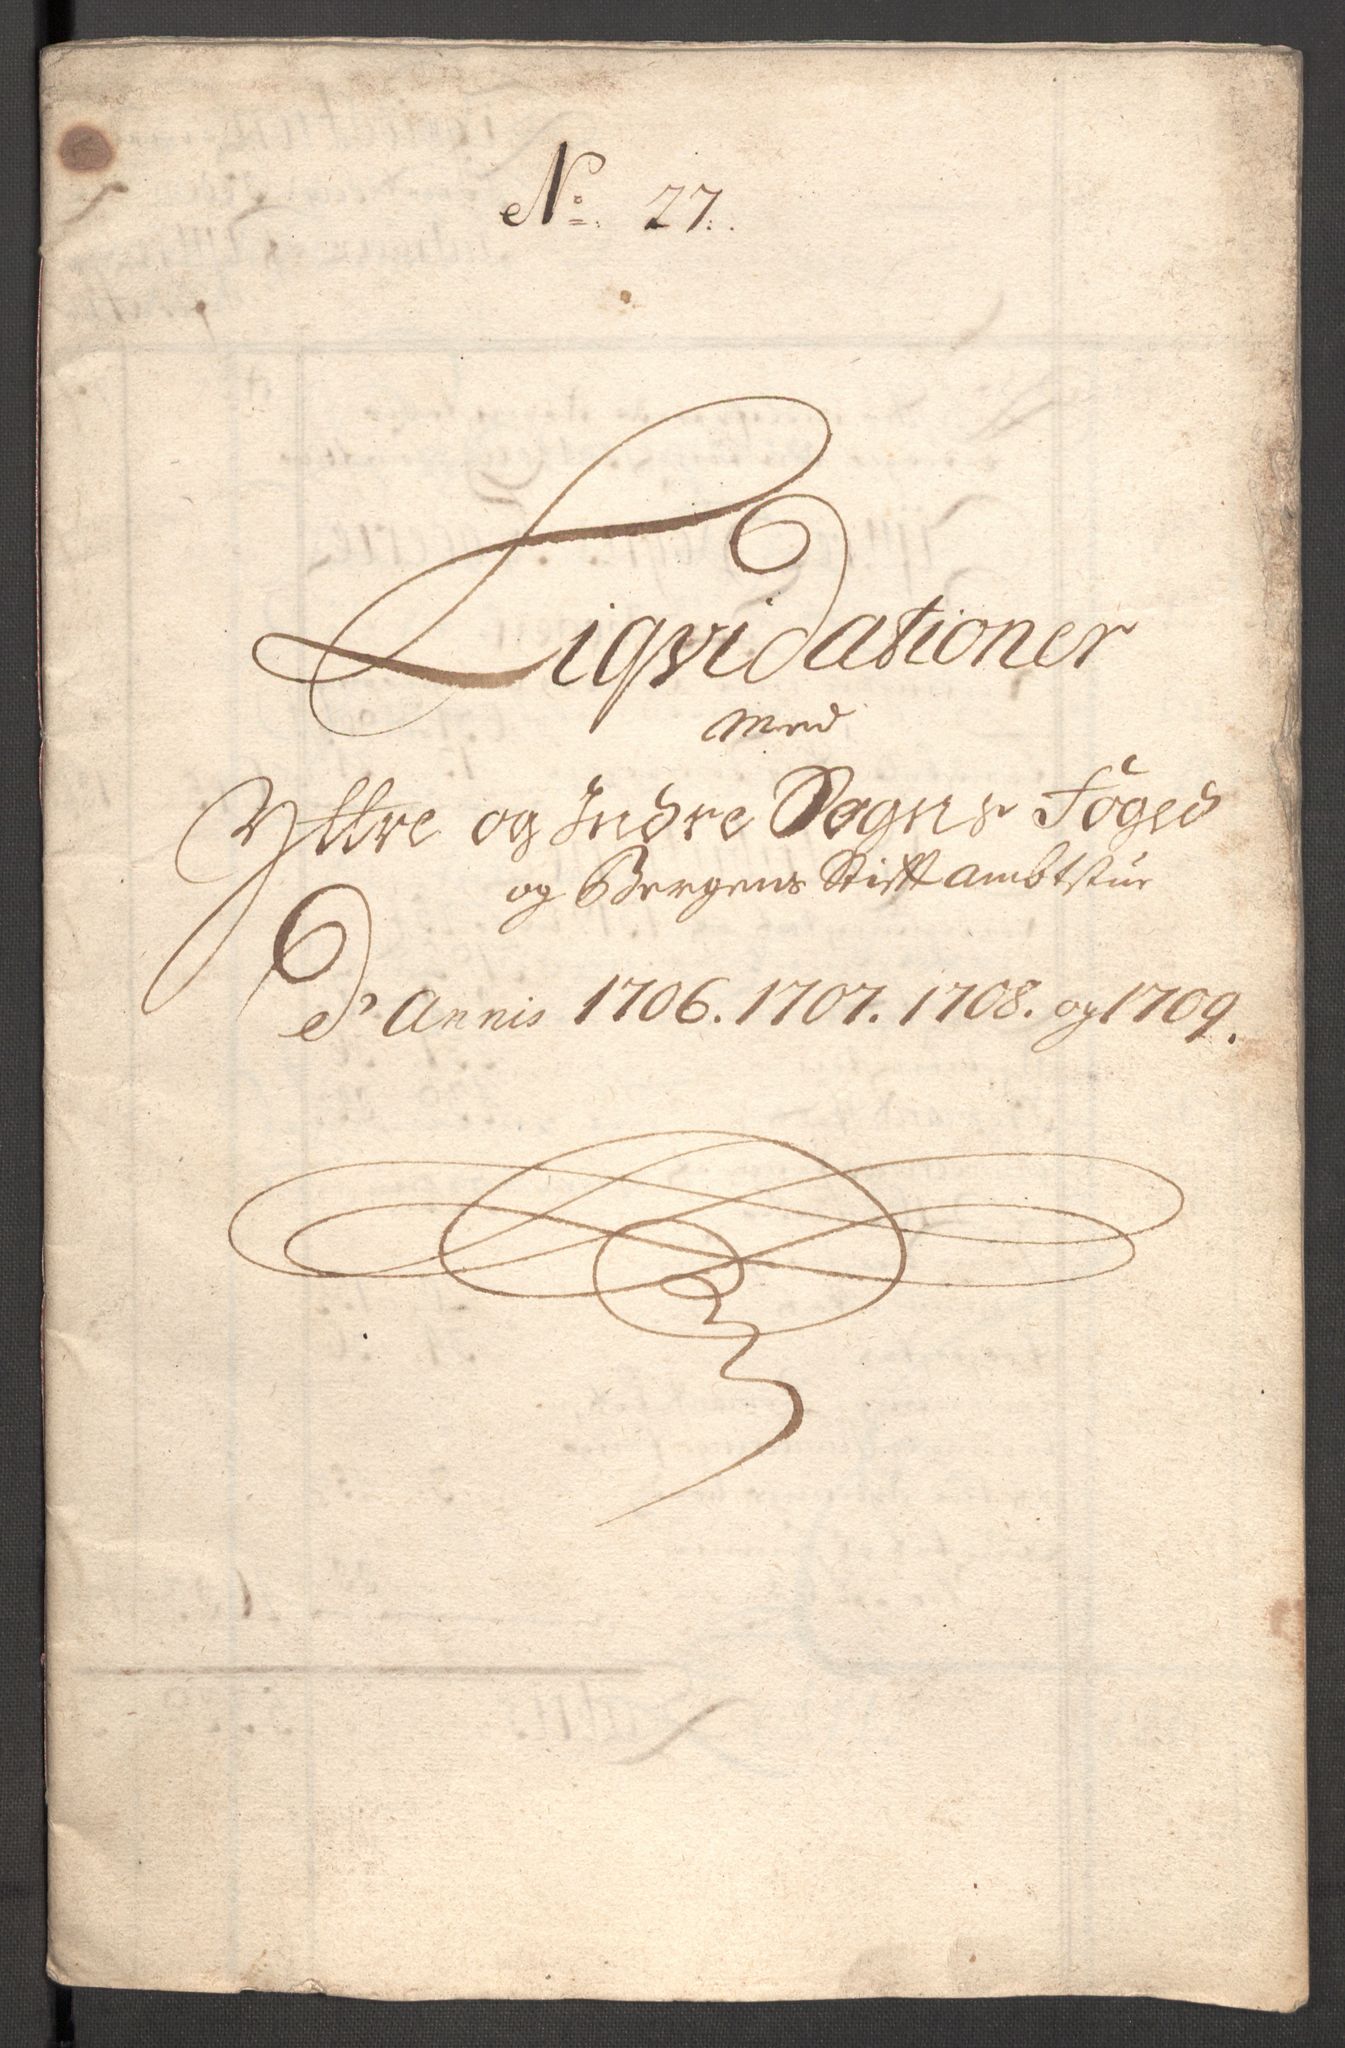 No. 27.
Liqvidationer
med
Yttre og Indre Sogns Foged
og Bergens Stift ambtstue
d' Annis 1706. 1707. 1708. og 1709.